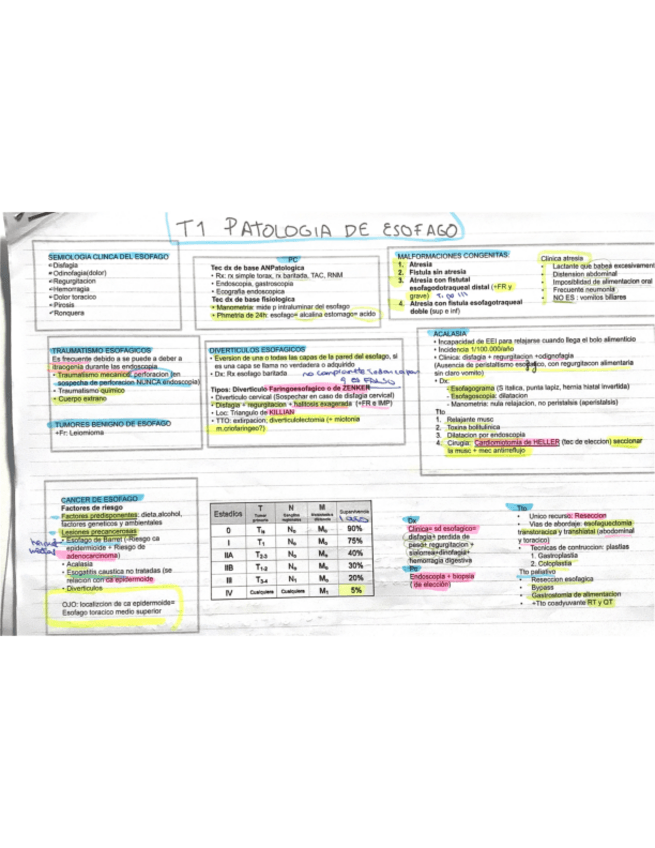 T1 PATOLOGIA DE ESOFAGO
SEMIOLOGIA CLINCA DEL ESOFAGO
Disfagia
Odinofagia(dolor)
Regurgitacion
Hemorragia
Dolor toracico
Pirosis
Ronquera
PC
Tec dx de base ANPatologica
• Rx: rx simple torax, rx baritada, TAC, RNM
• Endoscopia, gastroscopia
• Ecografia endoscopica
Tec dx de base fisiologica
• Manometria: mide p intraluminar del esofago
• Phmetria de 24h: esofago= alcalina estomago= acido
MALFORMACIONES CONGENITAS:
1. Atresia
2. Fistula sin atresia
3. Atresia con fistutal
esofagodotraqueal distal (+FR y
grave) Tipo III
4. Atresia con fistula esofagotraqueal
doble (sup e inf)
Clinica atresia
• Lactante que babea excesivament
• Distension abdominal
• Imposiblidad de alimentacion oral
• Frecuente neumonia
• NO ES : vomitos biliares
TRAUMATISMO ESOFAGICOS
Es frecuente debido a se puede a deber a
itraogenia durantes las endoscopia
• Traumatismo mecanico, perforacion (en
sospecha de perforacion NUNCA endoscopia)
• Traumatismo quimico
• Cuerpo extrano
TUMORES BENIGNO DE ESOFAGO
+Fr: Leiomioma
DIVERTICULOS ESOFAGICOS
• Eversion de una o todas las capas de la pared del esofago, si
es una capa se llama no verdadera o adquirido
• Dx: Rx esofago baritada no compromete todas capas
es FALSO
Tipos: Diverticulo Faringoesofagico o de ZENKER
• Diverticulo cervical (Sospechar en caso de disfagia cervical)
• Disfagia + regurgitacion + halitosis exagerada (+FR e IMP)
• Loc: Triangulo de KILLIAN
• TTO: extirpacion, diverticulolectomia (+ miotonia
m.criofaringeo?)
ACALASIA
• Incapacidad de EEI para relajarse cuando llega el bolo alimenticio
• Incidencia 1/100.000/año
• Clinica: disfagia + regurgitacion +odignofagia
(Ausencia de peristaltismo esofagico, con regurgitacon alimentaria
sin claro vomito)
• Dx:
- Esofagograma (S italica, punta lapiz, hernia hiatal invertida)
- Esofagoscopia: dilatacion
- Manometria: nula relajacion, no peristalsis (aperistalsis)
Tto
1. Relajante musc
2. Toxina botilulinica
3. Dilatacion por endoscopia
4. Cirugia: Cardiomiotomia de HELLER (tec de eleccion) seccionar
la musc + mec antireflujo
CANCER DE ESOFAGO
Factores de riesgo
Factores predisponentes: dieta,alcohol,
factores geneticos y ambientales
Lesiones precancerosas
• Esofago de Barret (-Riesgo ca
epidermoide + Riesgo de
adenocarcinoma)
• Acalasia
• Esogatitis caustica no tratadas (se
relacion con ca epidermoide
• Diverticulos
OJO: localizcion de ca epidermoide=
Esofago toracico medio superior
Estadios T N M Supervivencia
Tumor primario Ganglios regionales Metastasis a distancia 1 AÑO
0 Tis N0 M0 90%
I T1 N0 M0 75%
IIA T2-3 N0 M0 40%
IIB T1-2 N0 M0 30%
III T3-4 N1 M0 20%
IV Cualquiera Cualquiera M1 5%
Dx
Clinica= sd esofagico=
disfagia+ perdida de
peso+ regurgitacion +
sialorrea+dinofagia+
hemorragia digestiva
Pc
Endoscopia + biopsia
( de elección)
Tto
• Unico recurso: Reseccion
• Vias de abordaje: esofaguectomia
transtoracica y transhiatal (abdominal
y toracico)
• Tecnicas de contruccion: plastias
1. Gastroplastia
2. Coloplastia
Tto paliativo
• Reseccion esofagica
• Bypass
• Gastrostomia de alimentacion
• +Tto coadyuvante RT y QT